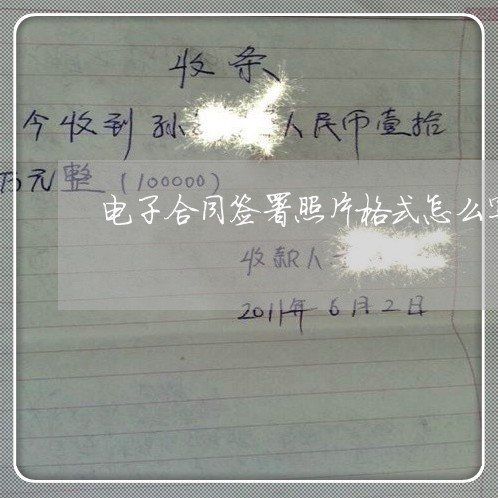 收条
今收到孙 人民币壹拾
万元整（100000）
电子合同签署照片格式怎么
收款人
2011年6月2日